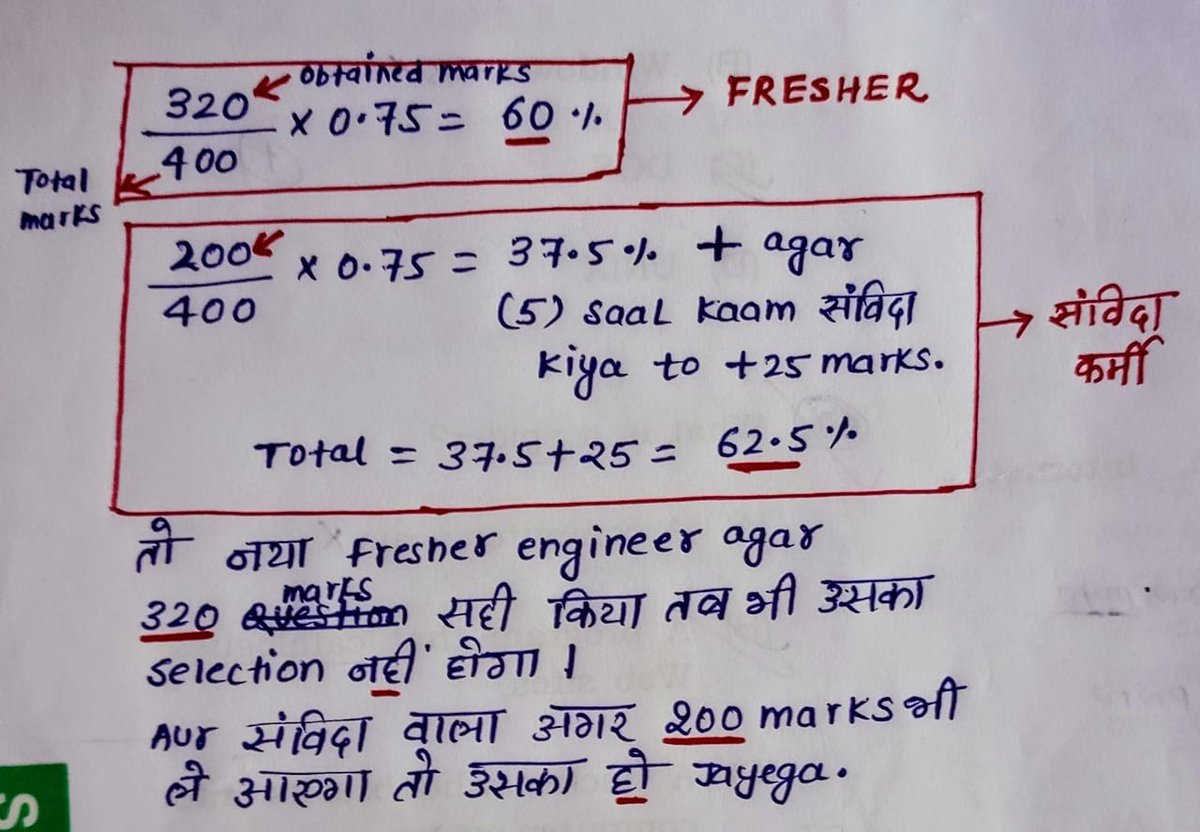 obtained marks
320/400 × 0.75 = 60 % → FRESHER
Total marks
200/400 × 0.75 = 37.5 % + agar
(5) saal kaam संविदा
kiya to +25 marks.
→ संविदा कर्मी
Total = 37.5 + 25 = 62.5 %
तो नया fresher engineer agar
marks
320 Question सही किया तब भी उसका
selection नहीं होगा ।
Aur संविदा वाला अगर 200 marks भी
ले आएगा तो उसका हो Jayega.
S